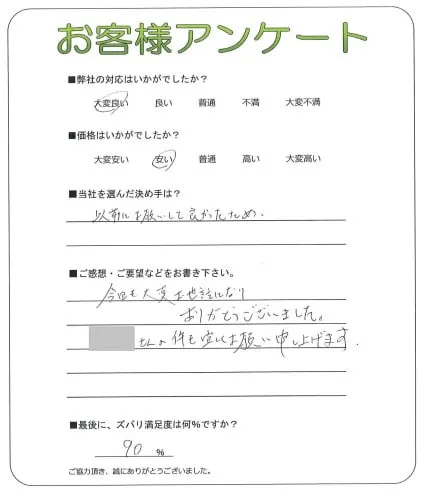 お客様アンケート
■弊社の対応はいかがでしたか？
大変良い 良い 普通 不満 大変不満
■価格はいかがでしたか？
大変安い 安い 普通 高い 大変高い
■当社を選んだ決め手は？
以前にお願いして良かったため、
■ご感想・ご要望などをお書き下さい。
今回も大変お世話になり
ありがとうございました。
さんの件も宜しくお願い申し上げます.
■最後に、ズバリ満足度は何%ですか？
90 %
ご協力頂き、誠にありがとうございました。